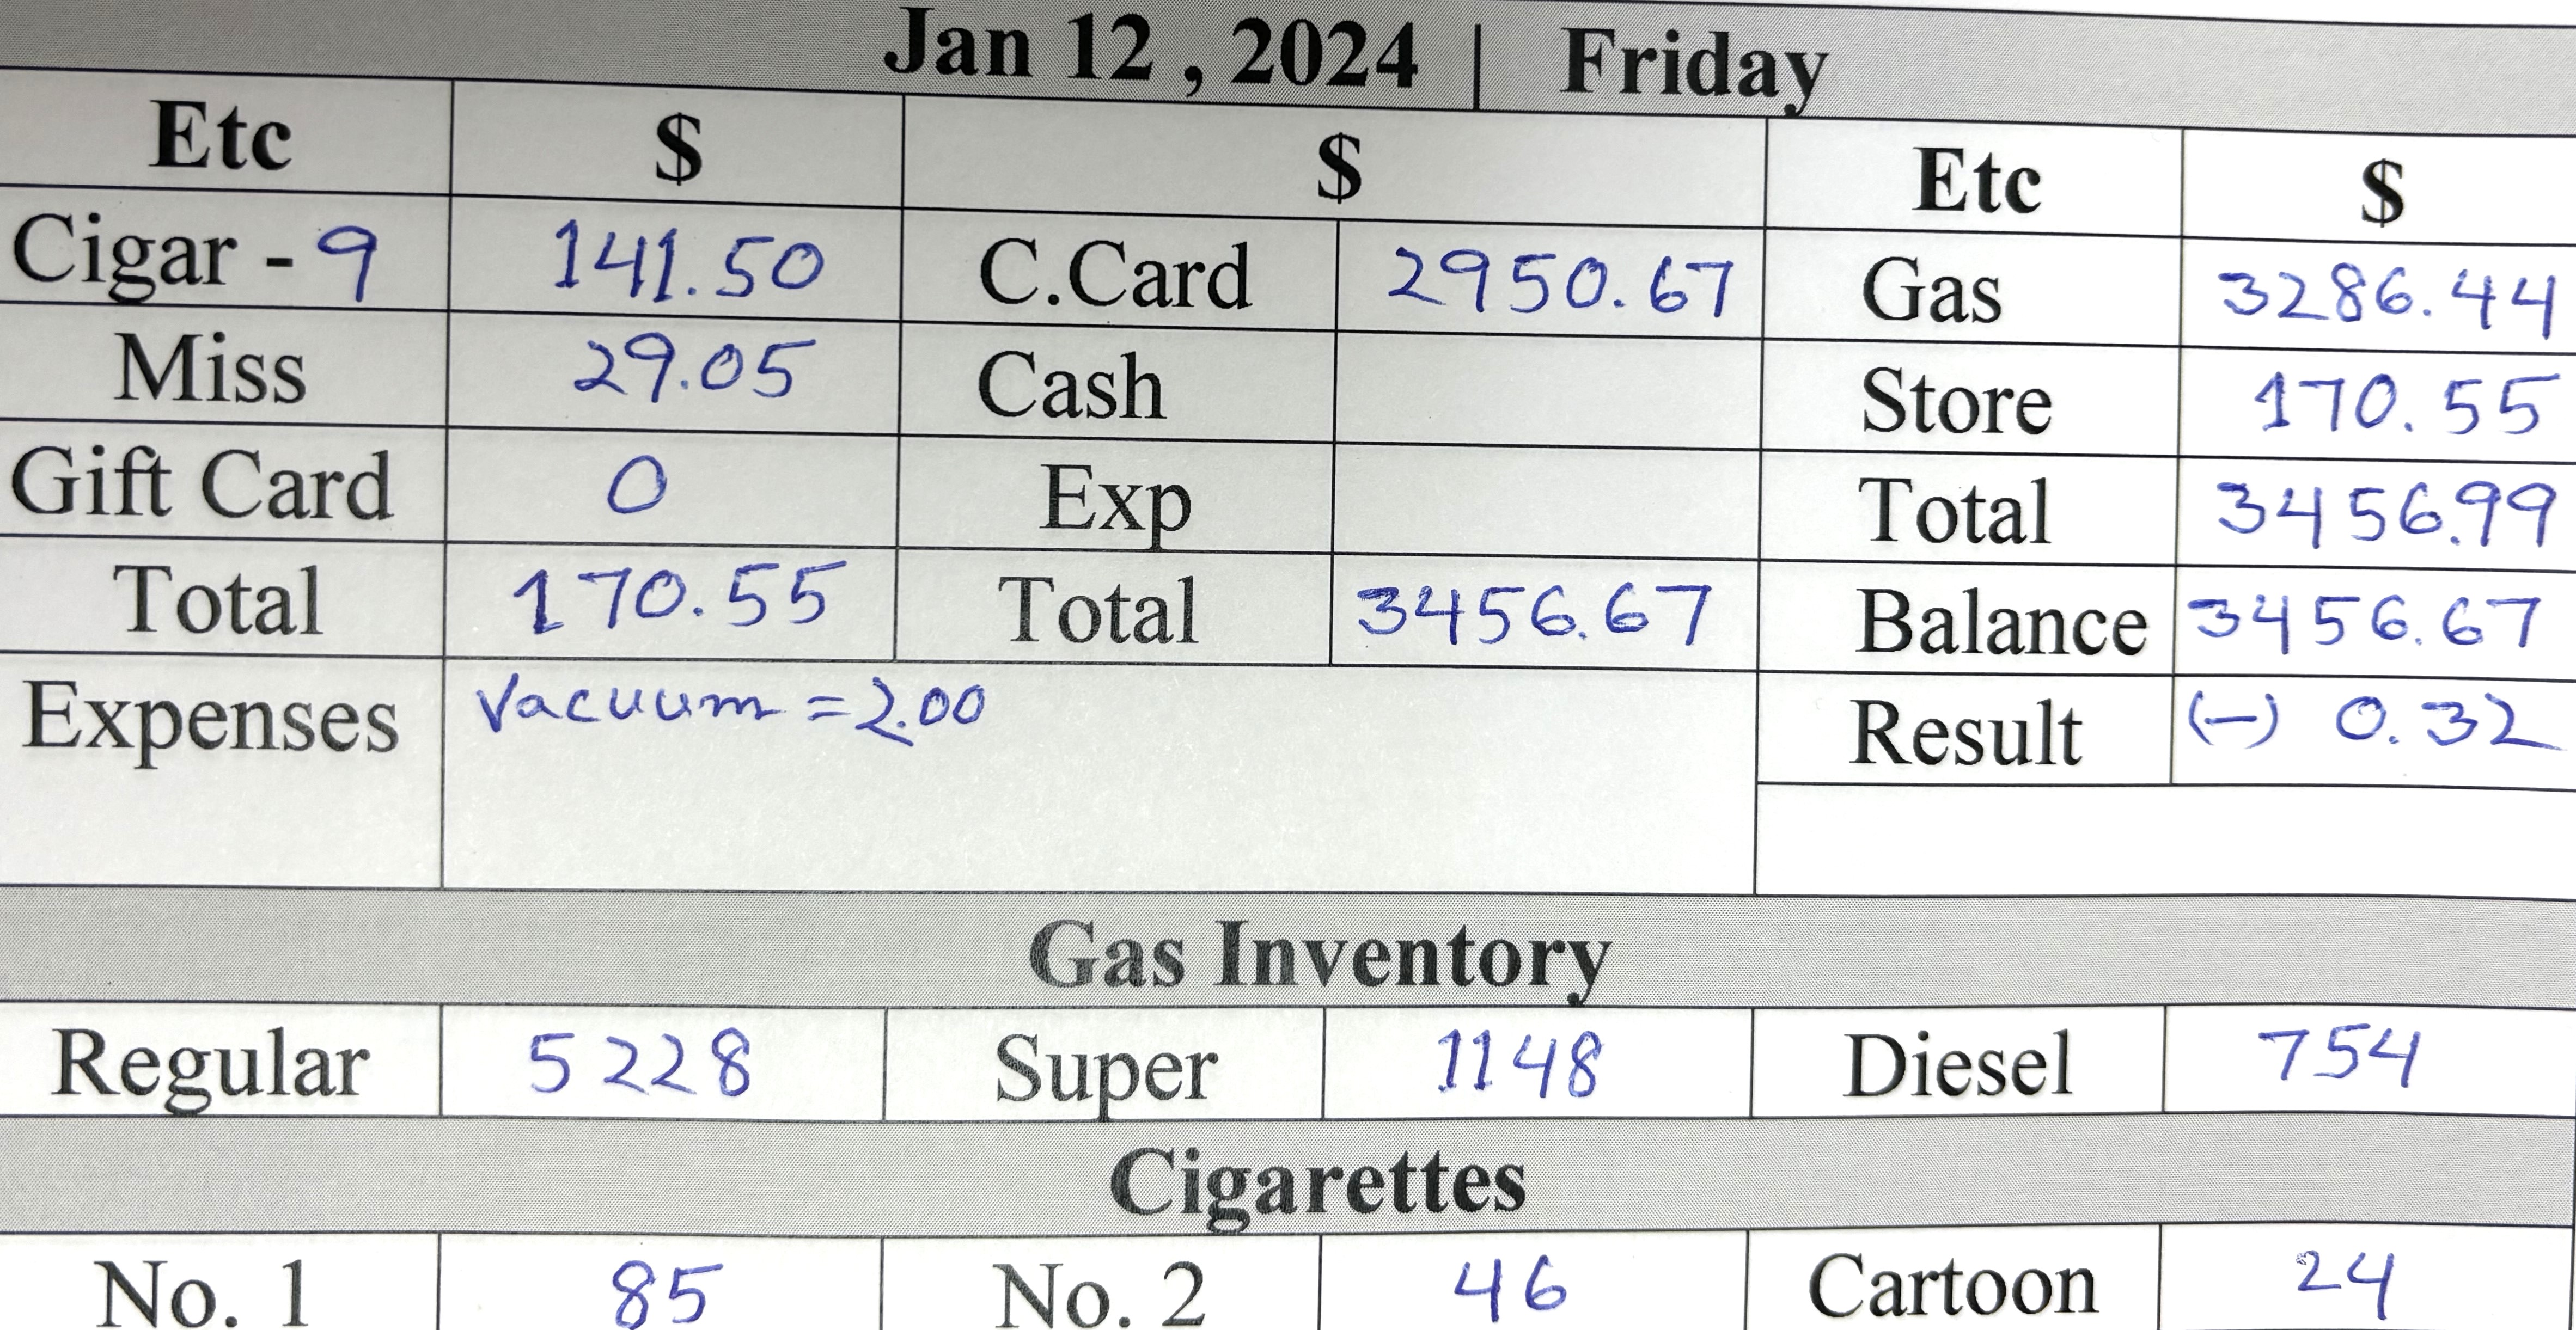 Jan 12 , 2024 | Friday
Etc $ $ Etc $
Cigar - 9 141.50 C.Card 2950.67 Gas 3286.44
Miss 29.05 Cash Store 170.55
Gift Card 0 Exp Total 3456.99
Total 170.55 Total 3456.67 Balance 3456.67
Expenses Vacuum = 2.00 Result (-) 0.32
Gas Inventory
Regular 5228 Super 1148 Diesel 754
Cigarettes
No. 1 85 No. 2 46 Cartoon 24